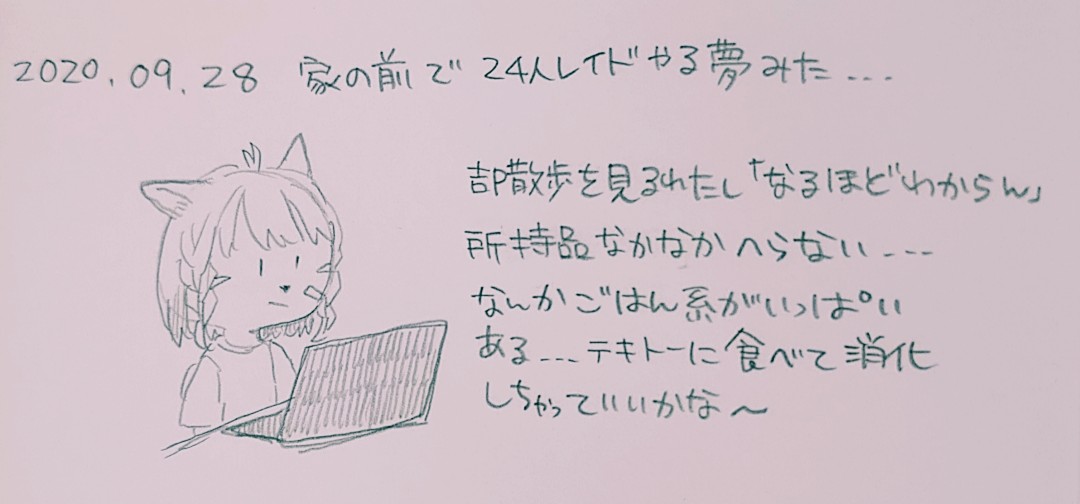 2020.09.28 家の前で 24人レイドやる夢みた...
吉P散歩を見るれたし「なるほどわからん」
所持品なかなかへらない...
なんかごはん系がいっぱい
ある...テキトーに食べて消化
しちゃっていいかな〜